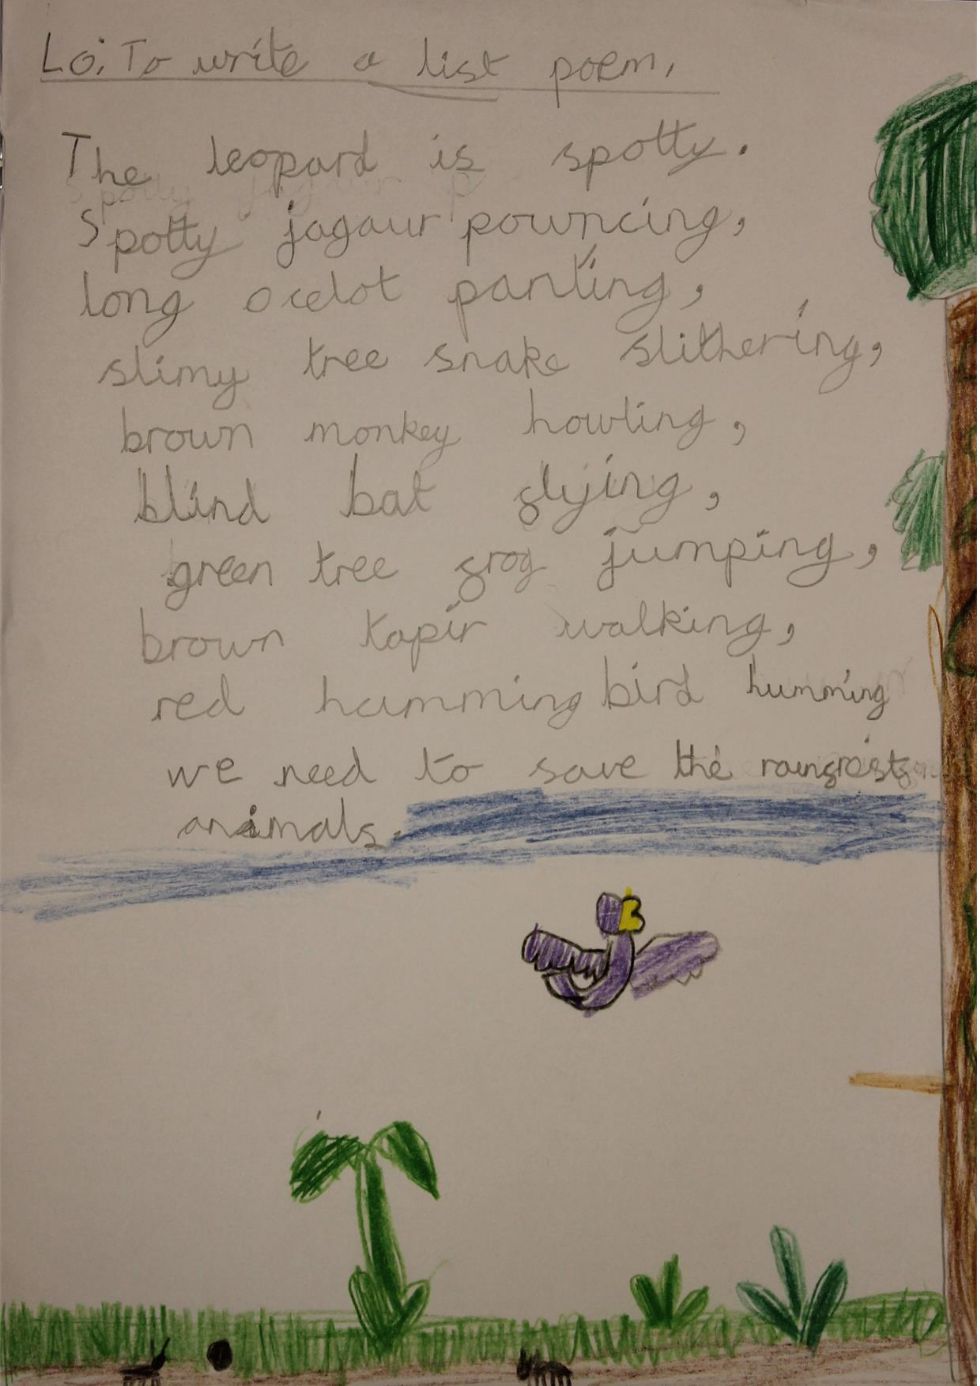 Lo: To write a list poem.
The leopard is spotty.
Spotty jagaur pouncing,
long ocelot panting,
slimy tree snake slithering,
brown monkey howling,
blind bat flying,
green tree frog jumping,
brown tapir walking,
red humming bird humming
we need to save the
animals.